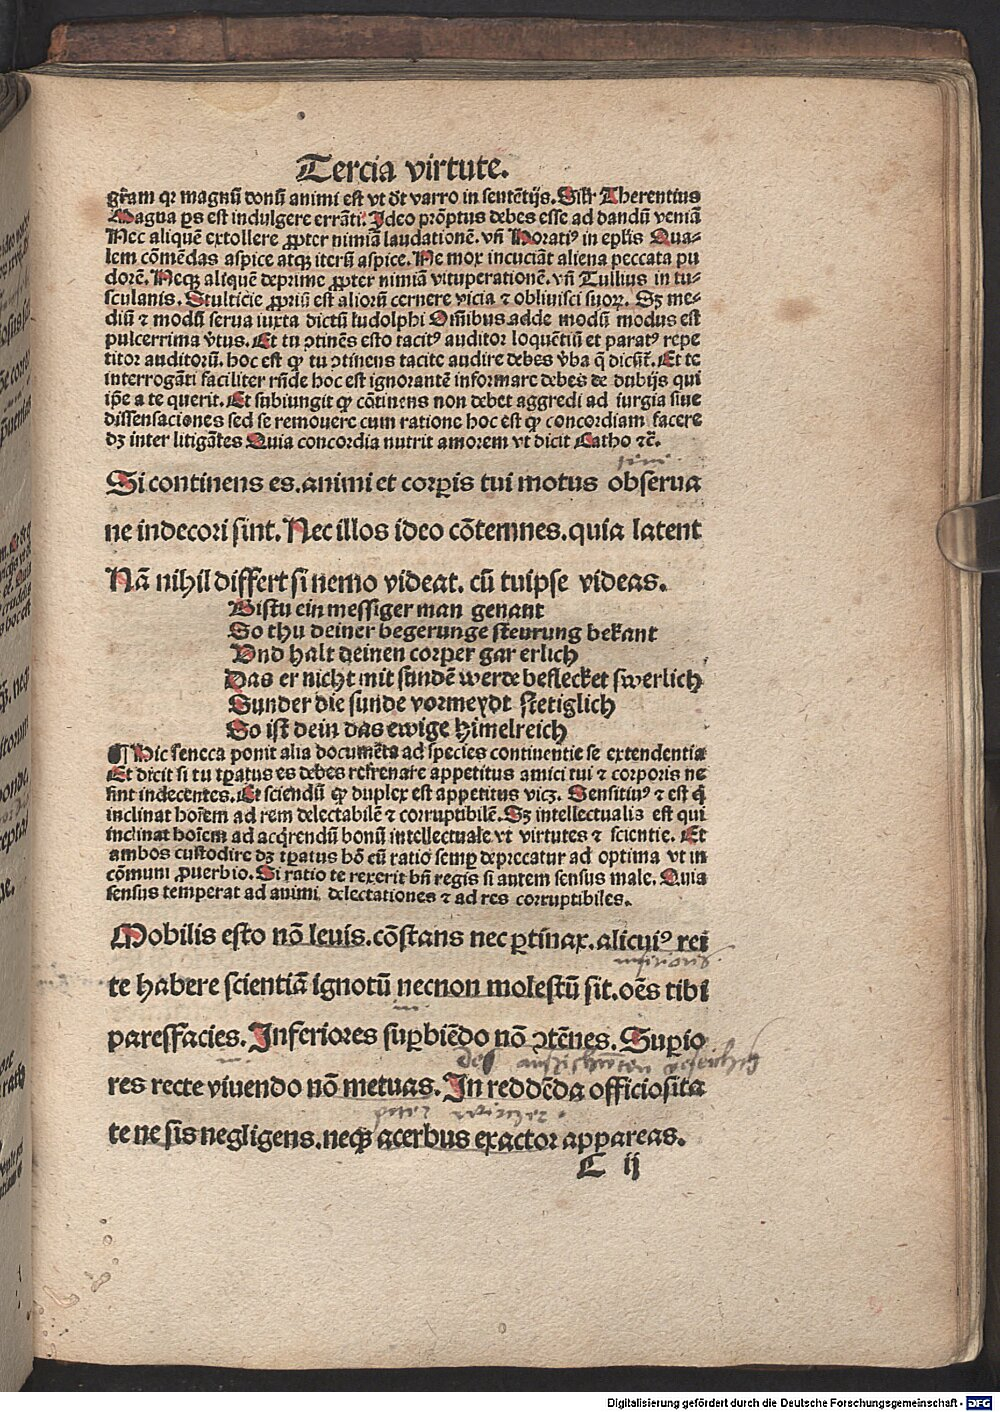 Tercia virtute.
gr̃am qr magnū donū animi est vt dt varro in sentētijs. Silr Therentius
Magna ps est indulgere errāti. Ideo prōptus debes esse ad dandū veniā
Nec aliquē extollere ꝓpter nimiā laudationē. vñ Horatiꝰ in eplis Qua-
lem cōmēdas aspice atqꝫ iterū aspice. Ne mox incuciāt aliena peccata pu
dorē. Neqꝫ aliquē deprime ꝓpter nimiā vituperationē. vñ Tullius in tu-
sculanis. Stulticie ꝓpriū est aliorū cernere vicia ⁊ obliuisci suoꝝ. Sꝫ me-
diū ⁊ modū serua iuxta dictū ludolphi Oīnibus adde modū modus est
pulcerrima v̄tus. Et tu ↄtinēs esto tacitꝰ auditor loquētiū et paratꝰ repe
titor auditorū. hoc est ꝙ tu ↄtinens tacite audire debes v̄ba q̄ dicūt̄. Et te
interrogāti faciliter rn̄de hoc est ignorantē informare debes de dubijs qui
ip̄e a te querit. Et subiungit ꝙ cōtinens non debet aggredi ad iurgia siue
dissensaciones sed se remouere cum ratione hoc est ꝙ concordiam facere
dꝫ inter litigātes Quia concordia nutrit amorem vt dicit Catho ⁊c̄.
Si continens es. animi et corꝑis tui motus obserua
ne indecori sint. Nec illos ideo cōtemnes. quia latent
Nā nihil differt si nemo videat. cū tuipse videas.
Bistu ein messiger man genant
So thu deiner begerunge steurung bekant
Vnd halt deinen corper gar erlich
Das er nicht mit sundē werde beflecket swerlich
Sunder die sunde vormeydt stetiglich
So ist dein das ewige himelreich
¶ Hic seneca ponit alia documēta ad species continentie se extendentia
Et dicit si tu tꝑatus es debes refrenare appetitus amici tui ⁊ corporis ne
sint indecentes. Et sciendū ꝙ duplex est appetitus vicꝫ. Sensitiuꝰ ⁊ est q̄
inclinat hoīem ad rem delectabilē ⁊ corruptibilē. Sꝫ intellectualis est qui
inclinat hoīem ad acq̄rendū bonū intellectuale vt virtutes ⁊ scientie. Et
ambos custodire dꝫ tꝑatus hō cū ratio semꝑ deprecatur ad optima vt in
cōmuni ꝓuerbio. Si ratio te rexerit bn̄ regis si autem sensus male. Quia
sensus temperat ad animi delectationes ⁊ ad res corruptibiles.
Mobilis esto nō leuis. cōstans nec ꝑtinax. alicuiꝰ rei
te habere scientiā ignotū necnon molestū sit. oēs tibi
pares facies. Inferiores suꝑbiēdo nō ↄtēnes. Suꝑio
res recte viuendo nō metuas. In reddēda officiosita
te ne sis negligens. neqꝫ acerbus exactor appareas.
C ij
Digitalisierung gefördert durch die Deutsche Forschungsgemeinschaft - DFG